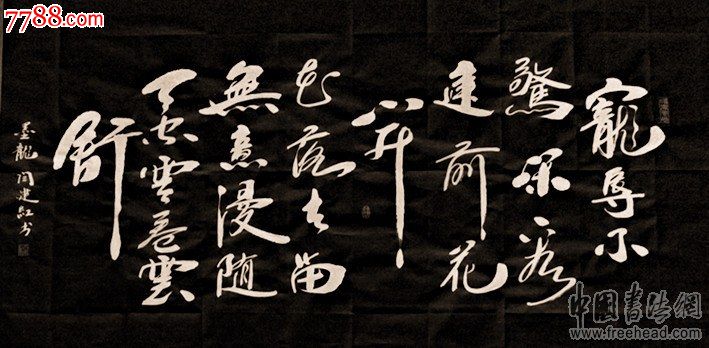 7788.com
寵辱不
驚閑看
庭前花
開
花落去留
無意漫随
天空雲卷雲
舒
墨龍闫建红书
中國書法網
www.freehead.com